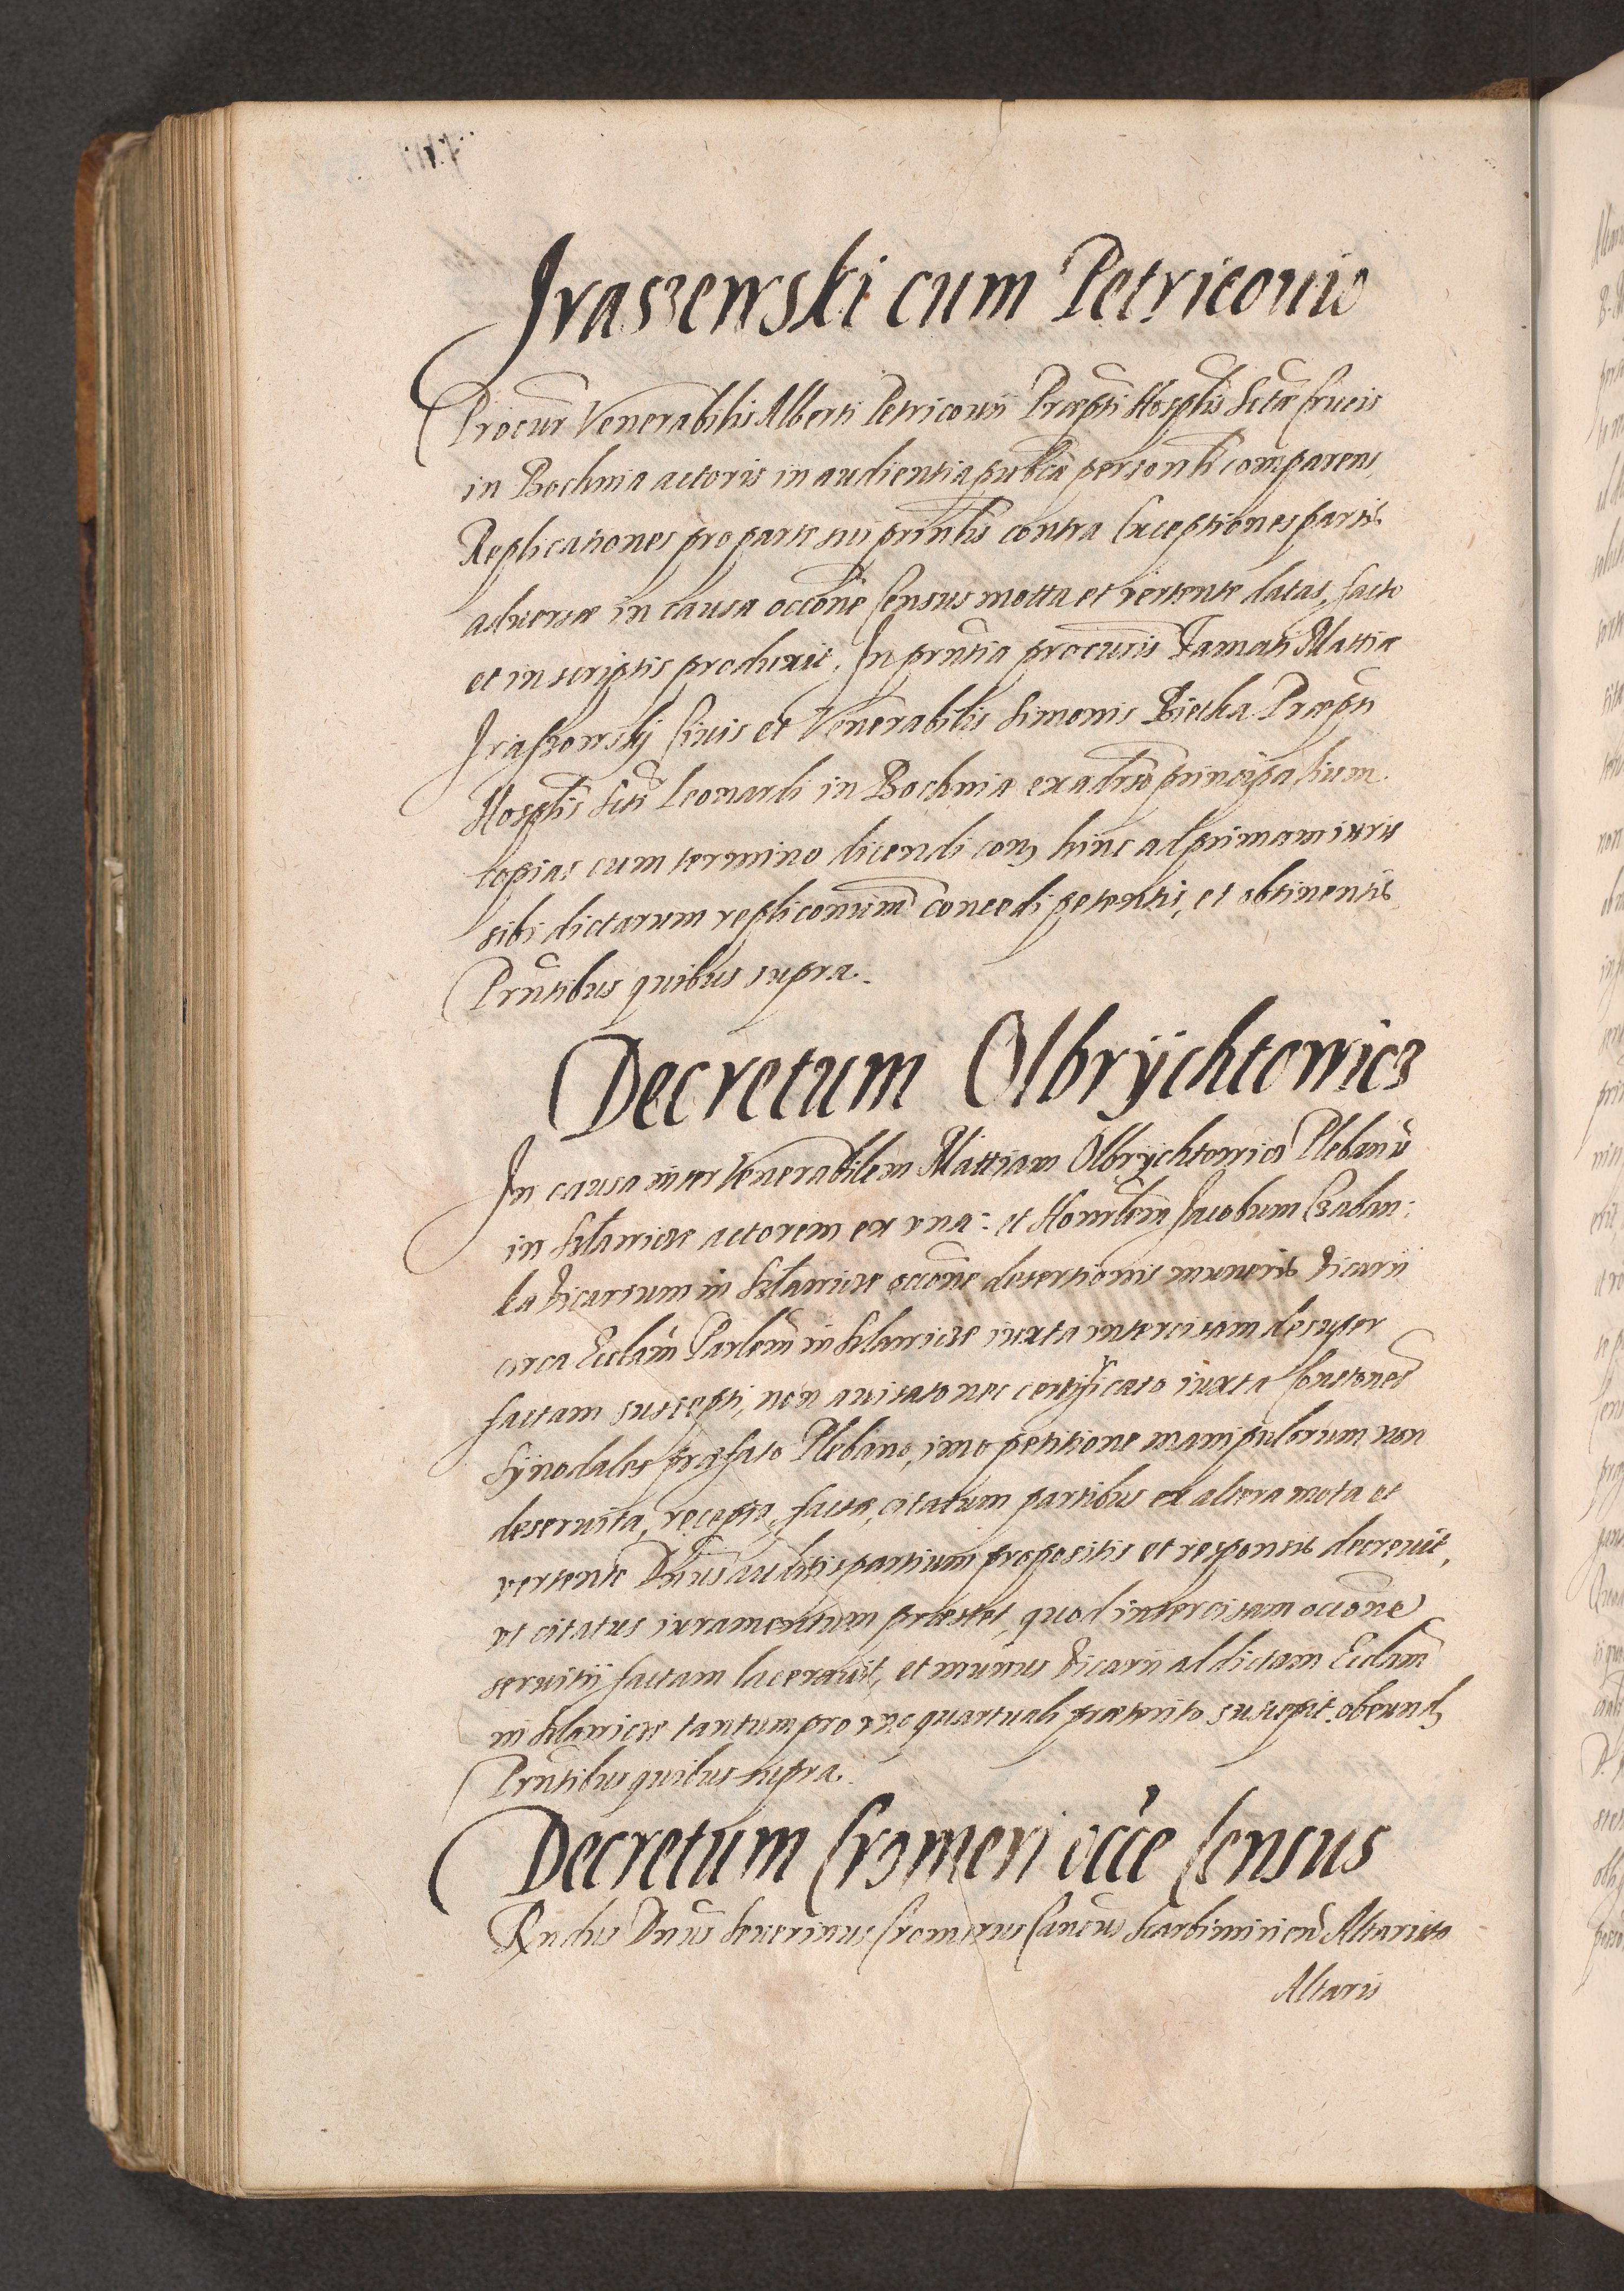 Iraszewski cum Petriconio
Procur Venerabilis Alberti Petriconii Præpti Hosptlis Sctæ Crucis
in Bochnia actoris in audientia publca personlr comparens,
Replicationes pro parte sui prinlis contra Exceptiones partis
aduersæ in causa occone Census motta et vertente datas, facto
et in scriptis produxit. In prntia procuris Famati Mattiæ
Iraszowskÿ Ciuis et Venerabilis Simonis Præpti
Hosptlis Scti Leonardi in Bochnia ex aduso principalium
copias cum termino dicendi con hinc ad primam iuris
sibi dictarum repliconum concedi petentis, et obtinentis
Prntibus quibus supra.
Decretum Olbrÿchtowicz
In causa inter Venerabilem Mattiam Olbrÿchtowicz Plebanū
in actorem ex vna: et Honorblem Iacobum Czaban:
ka Vicarium in occone desertionis muneris Vicarii
circa Ecclam Parlem in iuxta intercisam desuper
factam suscepti, non auisato nec certificato iuxta Constones
Sÿnodales præfato Plebano, imo petitione manipulorum non
deseruita, recepta, facta, citatum partibus ex altera mota et
vertente Dnus auditis partium propositis et responsis decreuit,
vt citatus iuramentum præstet, quod intercisam occone
seruitii factam lacerauit, et munus Vicarii ad dictam Ecclam
in tantum pro vno quartuali præterito suscepit obeund
Prntibus quibus supra.
Decretum Cromeri occe Census
Rndus Dnus Seuerinus Cromerus Cancus Scarbimirien Altarista
Altaris